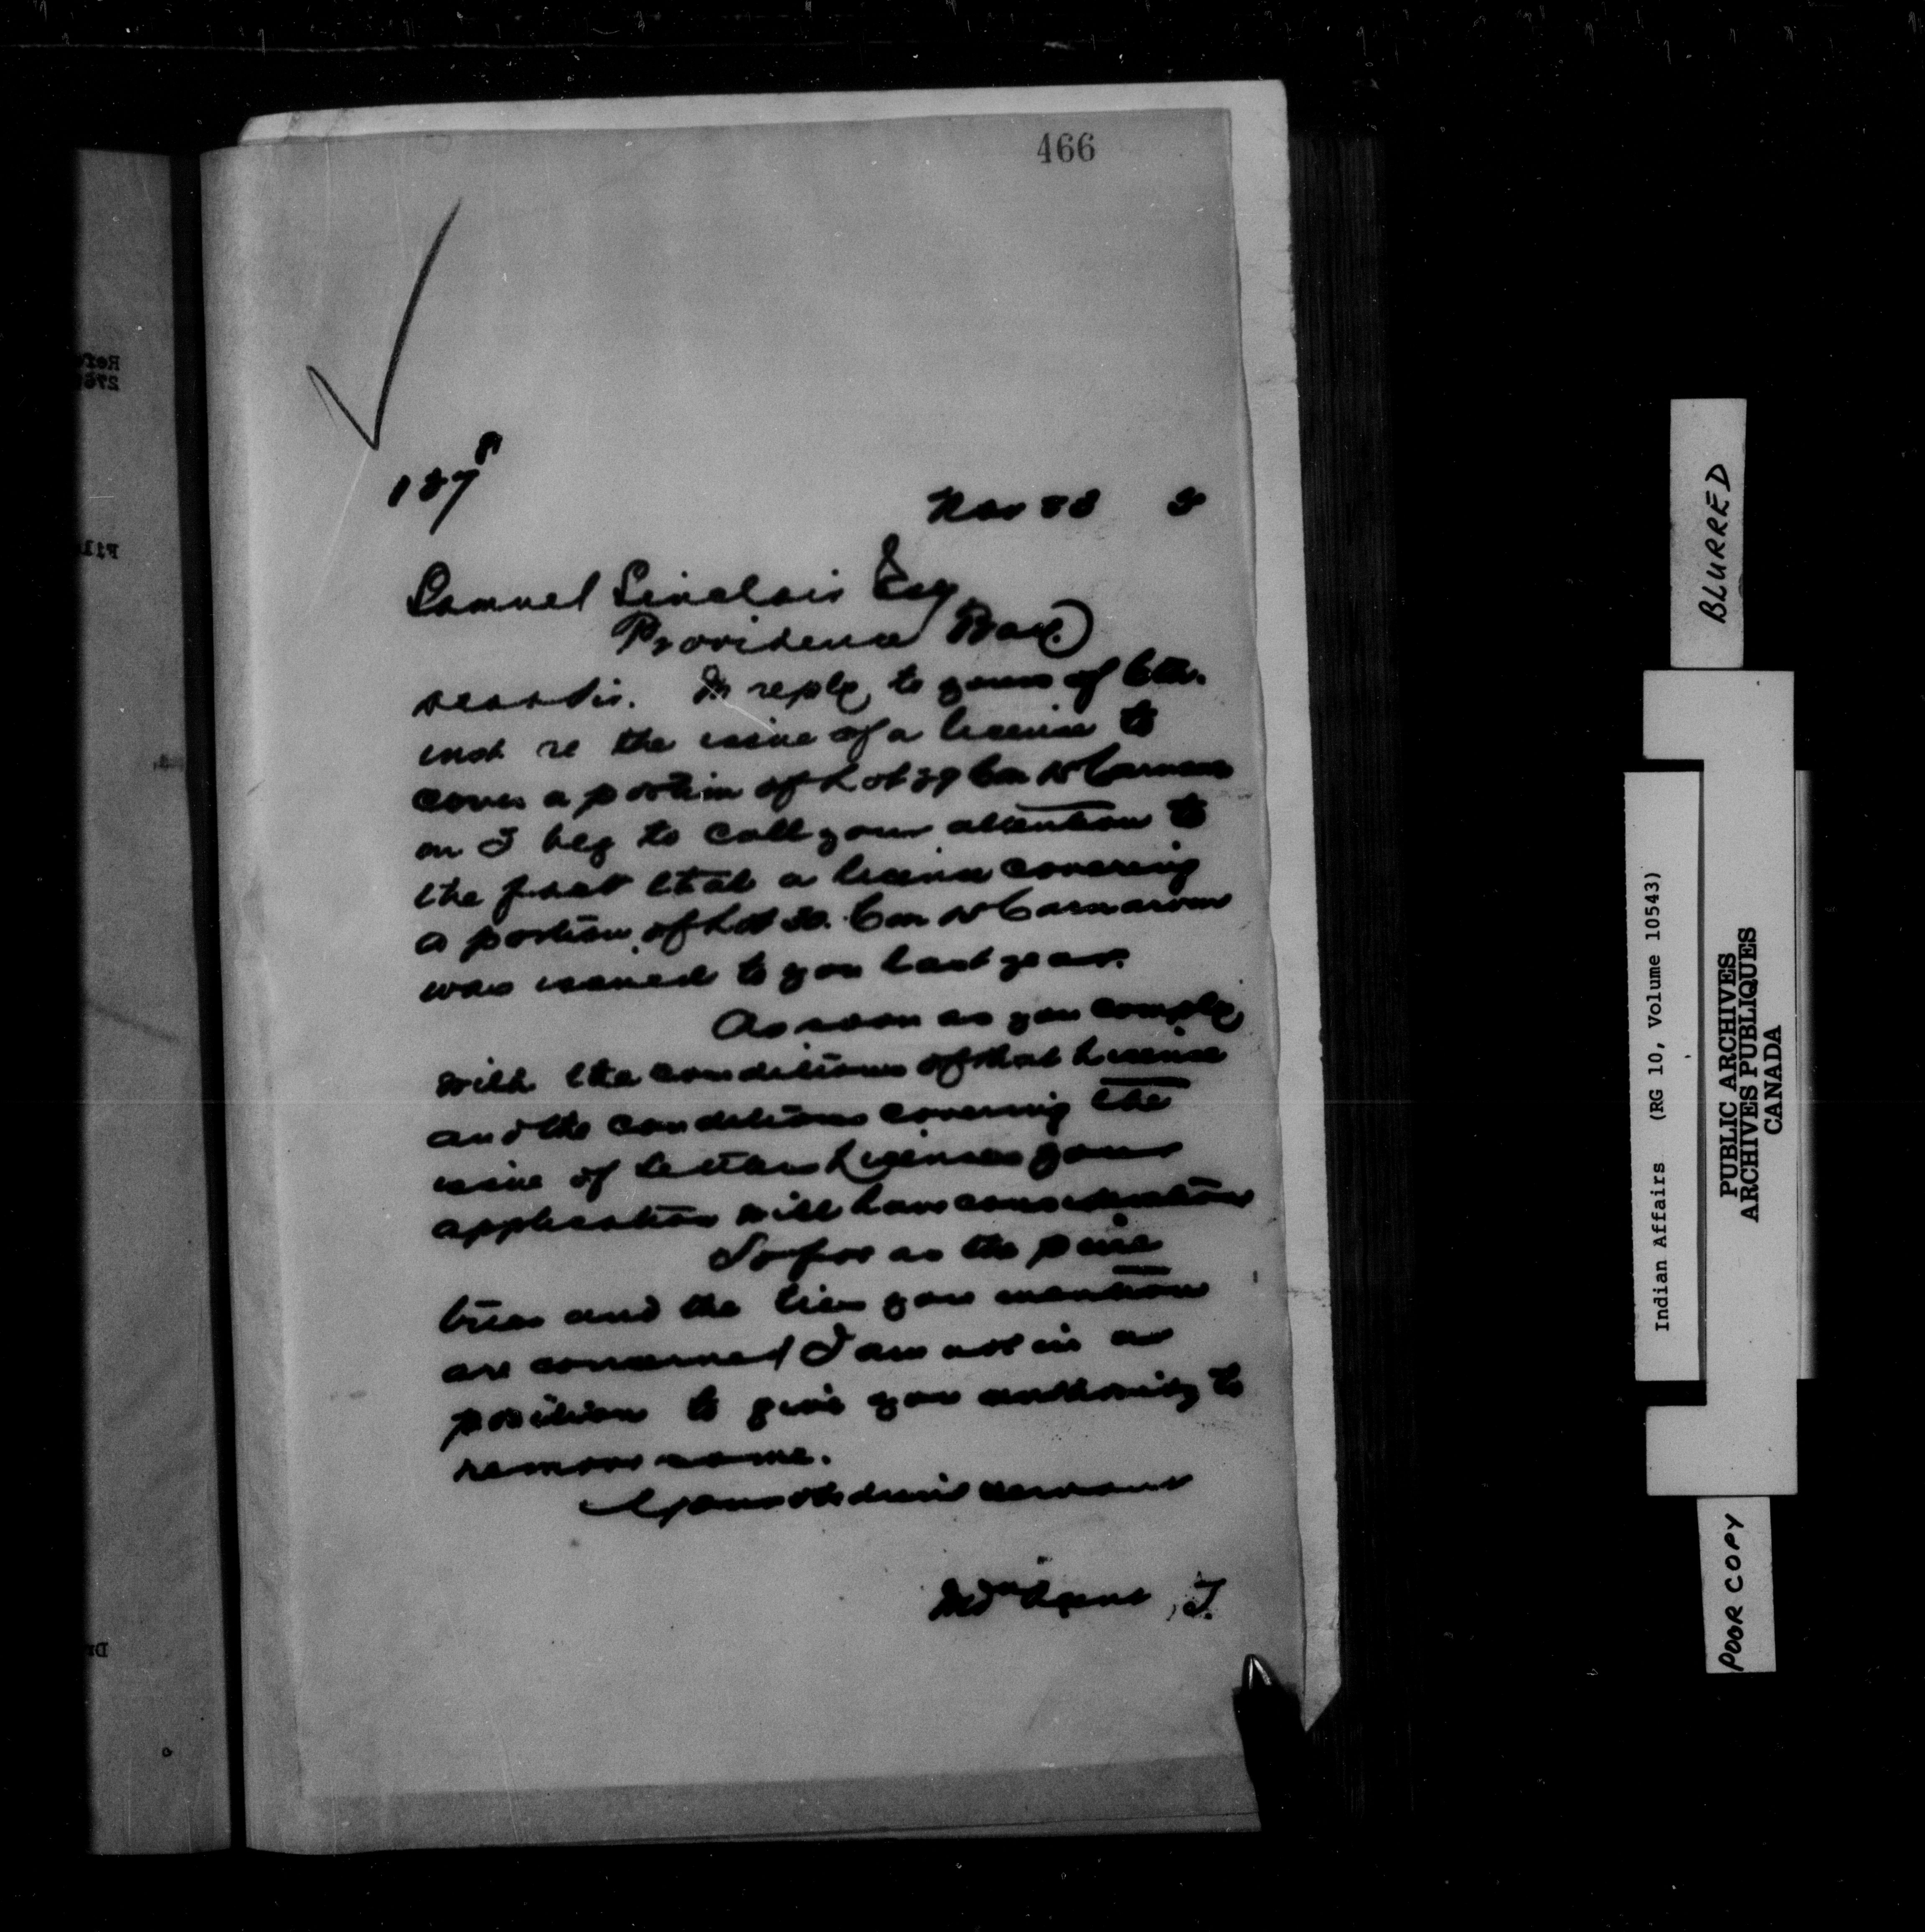 466
187
Nov
Samuel Sinclair Esq
Providence Bay
Dear Sir. In reply to yours of 6th.
inst re the issue of a license to
cover a portion of Lot 29 Con Carnarv
on I beg to call your attention to
the fact that a license covering
a portion of Lot 30. Con Carnarvon
was issued to you last year.
As soon as you comply
with the conditions of that License
and the conditions covering the
issue of Settlers Licenses your
application will have consideration
So far as the pine
trees and the ties you mention
are concerned I am not in a
position to give you authority to
remove same.
Your obedient servant
Indn Agent
BLURRED
Indian Affairs (RG 10, Volume 10543)
PUBLIC ARCHIVES
ARCHIVES PUBLIQUES
CANADA
POOR COPY